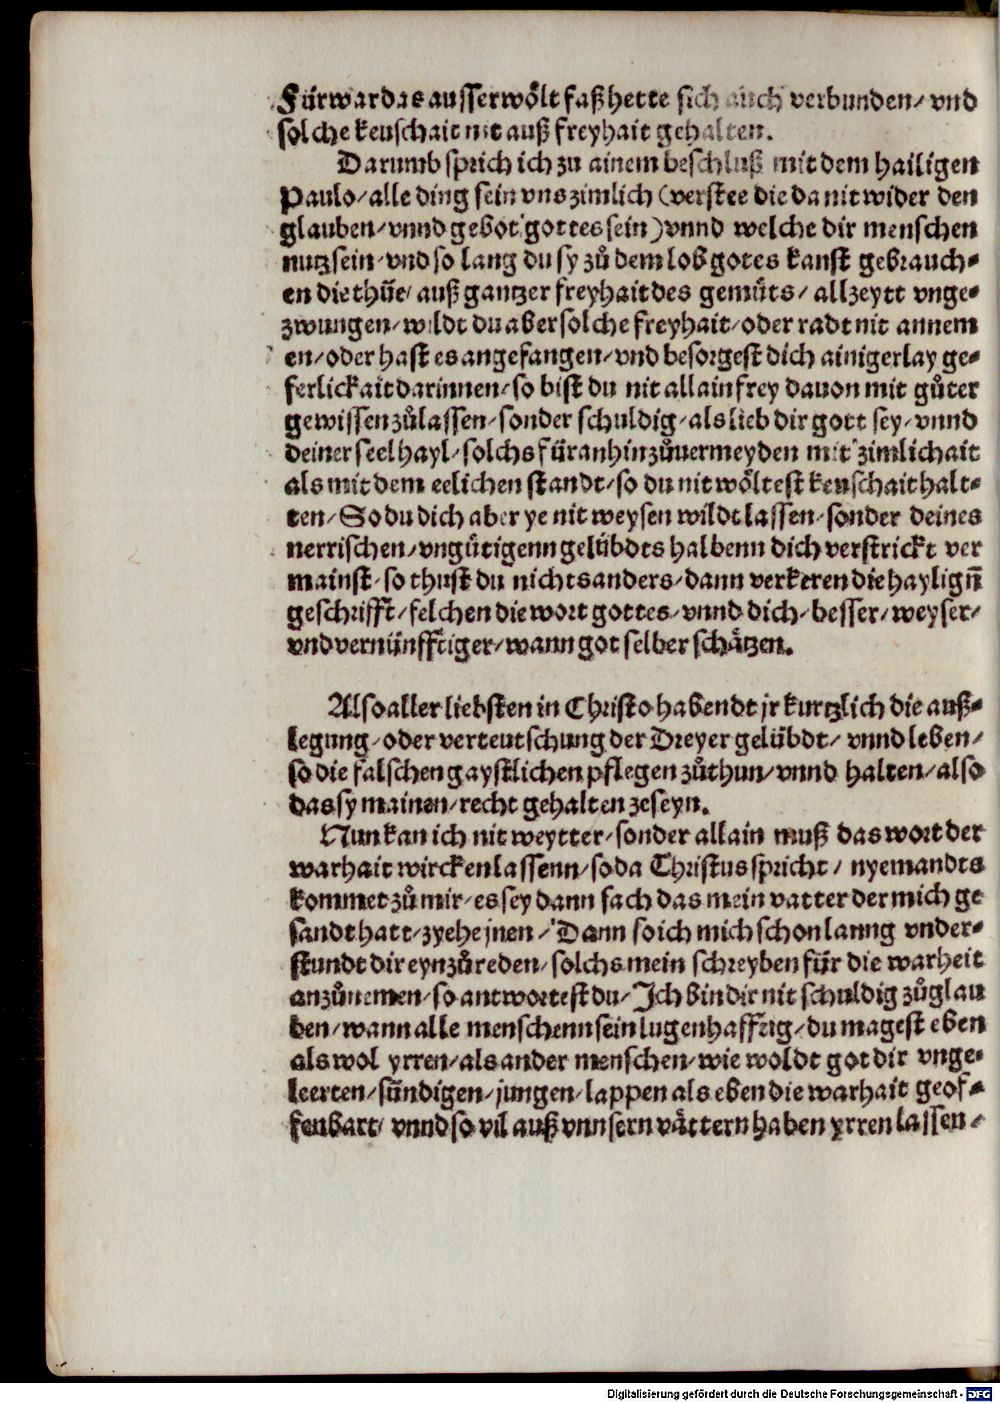 Fürwar das ausserwölt faß hette sich auch verbunden/ vnd
solche keuschait nit auß freyhait gehalten.
Darumb sprich ich zu ainem beschluß mit dem hailigen
Paulo/ alle ding sein vns zimlich (verstee die da nit wider den
glauben/ vnnd gebot gottes sein) vnnd welche dir menschen
nutz sein/ vnd so lang du sy zů dem lob gotes kanst gebrauch⸗
en die thüe/ auß gantzer freyhait des gemüts/ allzeytt vnge⸗
zwungen/ wildt du aber solche freyhait/ oder radt nit annem
en/ oder hast es angefangen/ vnd besorgest dich ainigerlay ge⸗
ferlickait darinnen/ so bist du nit allain frey dauon mit gůter
gewissen zůlassen/ sonder schuldig/ als lieb dir gott sey/ vnnd
deiner seel hayl/ solchs füranhin zůuermeyden mit zimlichait
als mit dem eelichen standt/ so du nit wöltest keuschait halt⸗
ten/ So du dich aber ye nit weysen wildt lassen/ sonder deines
nerrischen/ vngütigenn gelübdts halbenn dich verstrickt ver
mainst/ so thust du nichts anders/ dann verkeren die haylign̄
geschrifft/ felchen die wort gottes/ vnnd dich/ besser/ weyser/
vnd vernünfftiger/ wann got selber schätzen.
Also aller liebsten in Christo habendt jr kurtzlich die auß⸗
legung/ oder verteutschung der Dreyer gelübdt/ vnnd leben/
so die falschen gaystlichen pflegen zůthun/ vnnd halten/ also
das sy mainen/ recht gehalten ze seyn.
Nun kan ich nit weytter/ sonder allain muß das wort der
warhait wircken lassenn/ so da Christus spricht/ nyemandts
kommet zů mir/ es sey dann sach das mein vatter der mich ge
sandt hatt/ zyehe jnen/ Dann so ich mich schon lanng vnder⸗
stundt dir eynzůreden/ solchs mein schreyben für die warheit
anzůnemen/ so antwortest du/ Ich bin dir nit schuldig zůglau
ben/ wann alle menschenn sein lugenhafftig/ du magest eben
als wol yrren/ als ander menschen/ wie woldt got dir vnge⸗
leerten/ sündigen/ jungen/ lappen als eben die warhait geof⸗
fenbart/ vnnd so vil auß vnnsern vättern haben yrren lassen/
Digitalisierung gefördert durch die Deutsche Forschungsgemeinschaft - DFG